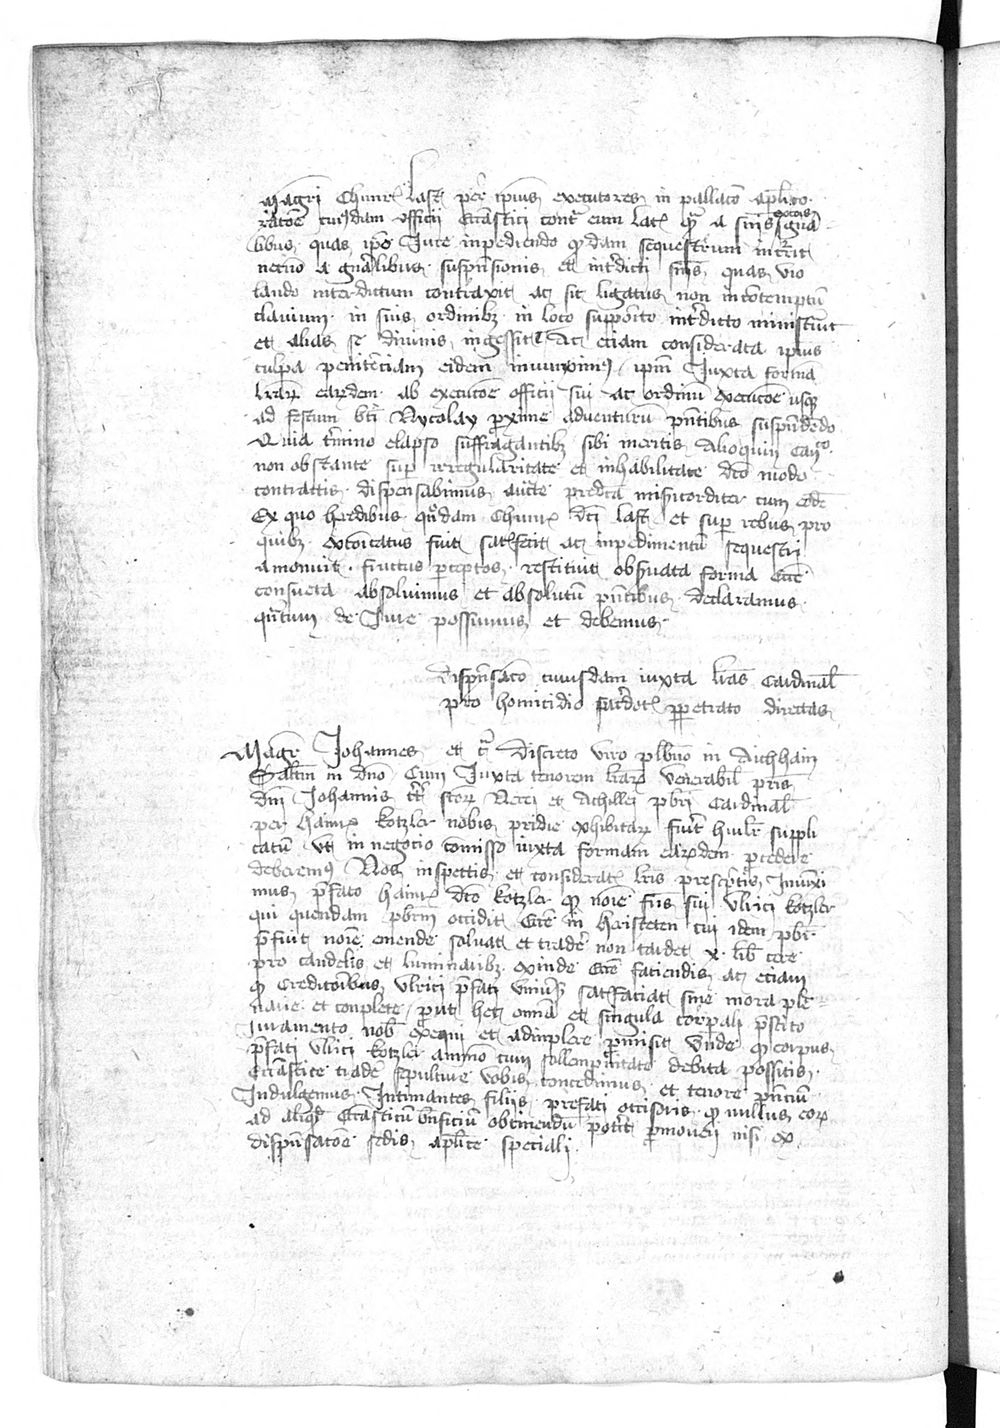 Magri Chunr Last per ipius executores in pallaco aplico
racōe cuiusdam officii Ecciastici cont eum lat q a sniis excois gnā
libus quas ipe Iure inpediendo quedam sequestrum incurrit
necno a gnalibus suspensionis et intdicti sniis quas vio
lando interdictum contraxit ac sic ligatus non incontemptū
clavium in suis ordinibz in loco supposito intdicto ministrāvit
et alias se divinis ingessit Ac etiam considerata ipius
culpa penitēciam eidem iniunximus ipm Iuxta formā
lrār earundem ab execucōe officii sui ac ordinū execucōe usqz
ad festum bti Nycolay proxime adventurū pntibus suspendēdo
Quia tmino elapso suffragantibz sibi meritis Alioquin canōco
non obstante sup irregularitate et inhabilitate dco modo
contractis dispensabimus aucte predca misicorditer cum eodē
Ex quo heredibus quodam Chunr dci Last et sup rebus pro
quibz excoicatus fuit satisfecit ac inpedimentū sequestri
amovit fructus perceptos restituit obsvata forma Eccie
consueta absolvimus et absolutū pntibus declaramus
quntum de Iure possumus et debemus
Dispensaco cuiusdam iuxta lras Cardinal
pro homicidio sacerdot perpetrato directas
Magr Johannes et c Discreto viro plbno in Aichhain
Salutm in dno Cum Iuxta tenorem lrar venerabil pris
dni Johannis tt scor Nerei et Achillei pbri Cardinal
per Hainr Kotzler nobis pridie exhibitar fuit humilr suppli
catū ut in negocio comisso iuxta formam earundem procedere
deberemus Nos inspectis et considerat lris prescriptis Iniunxi
mus prefato Hainr dco Kotzler qz noie fris sui Ulrici Kotzler
qui quendam pbrm occidit Eccie in Haersteten cui idem pbr
prefuit noie emende solvat et trade non tardet x lib cere
pro candelis et luminaribz exinde Eccie faciendis ac etiam
qz creditoribus Ulrici prefati universis satisfaciat sine mora ple
narie et conplete prout hec omia et singula corpali prestito
Iuramento nob exequi et adimplere promisit Unde qz corpus
prefati Ulrici Kotzler ammo cum sollempnitate debita possitis
Ecciastice tradē sepulture vobis concedimus et tenore pntium
Indulgemus Intimantes filiis prefati occisoris qz nullus eor
ad aliqd Ecciasticū bnficiū obtinendū potit pmoveri nisi ex
dispensacōe sedis aplice speciali